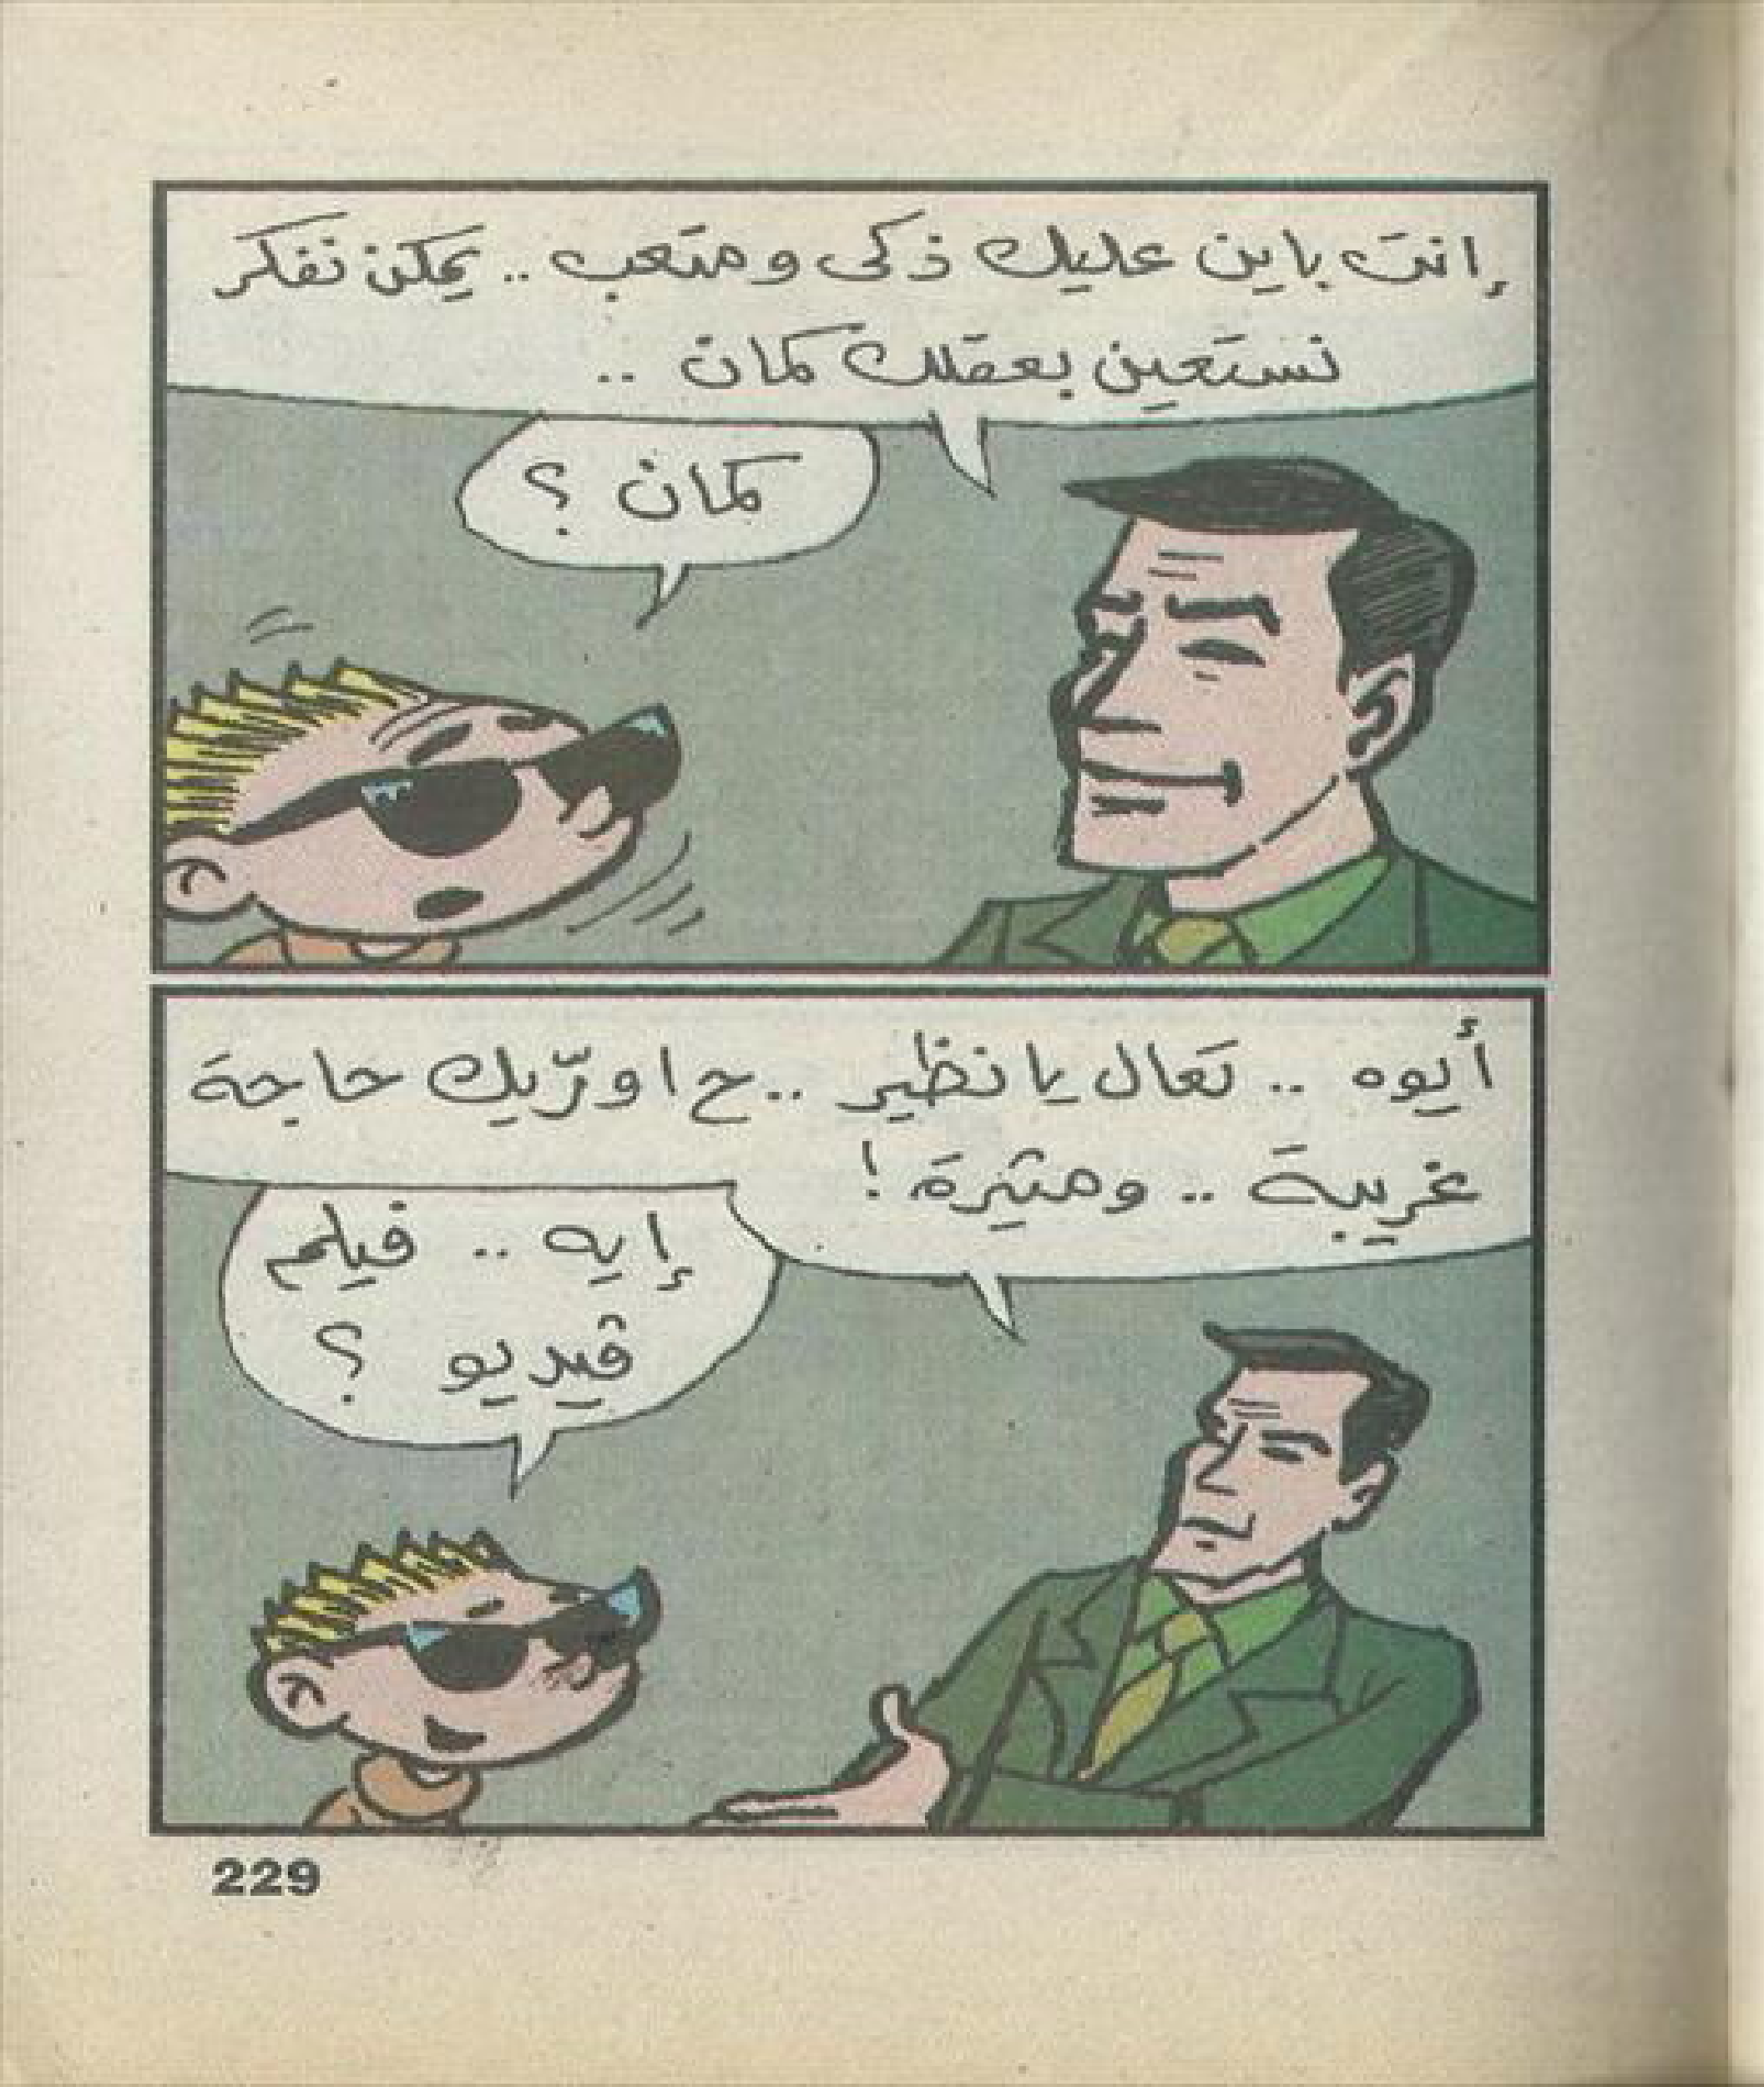 إنت باين عليك ذكى ومتعب .. يمكن نفكر
نستعين بعقلك كمان ..
كمان ؟
أيوه .. تعال يا نظير .. ح اورّيك حاجة
غريبة .. ومثيرة !
إيه .. فيلم
ڤيديو ؟
229